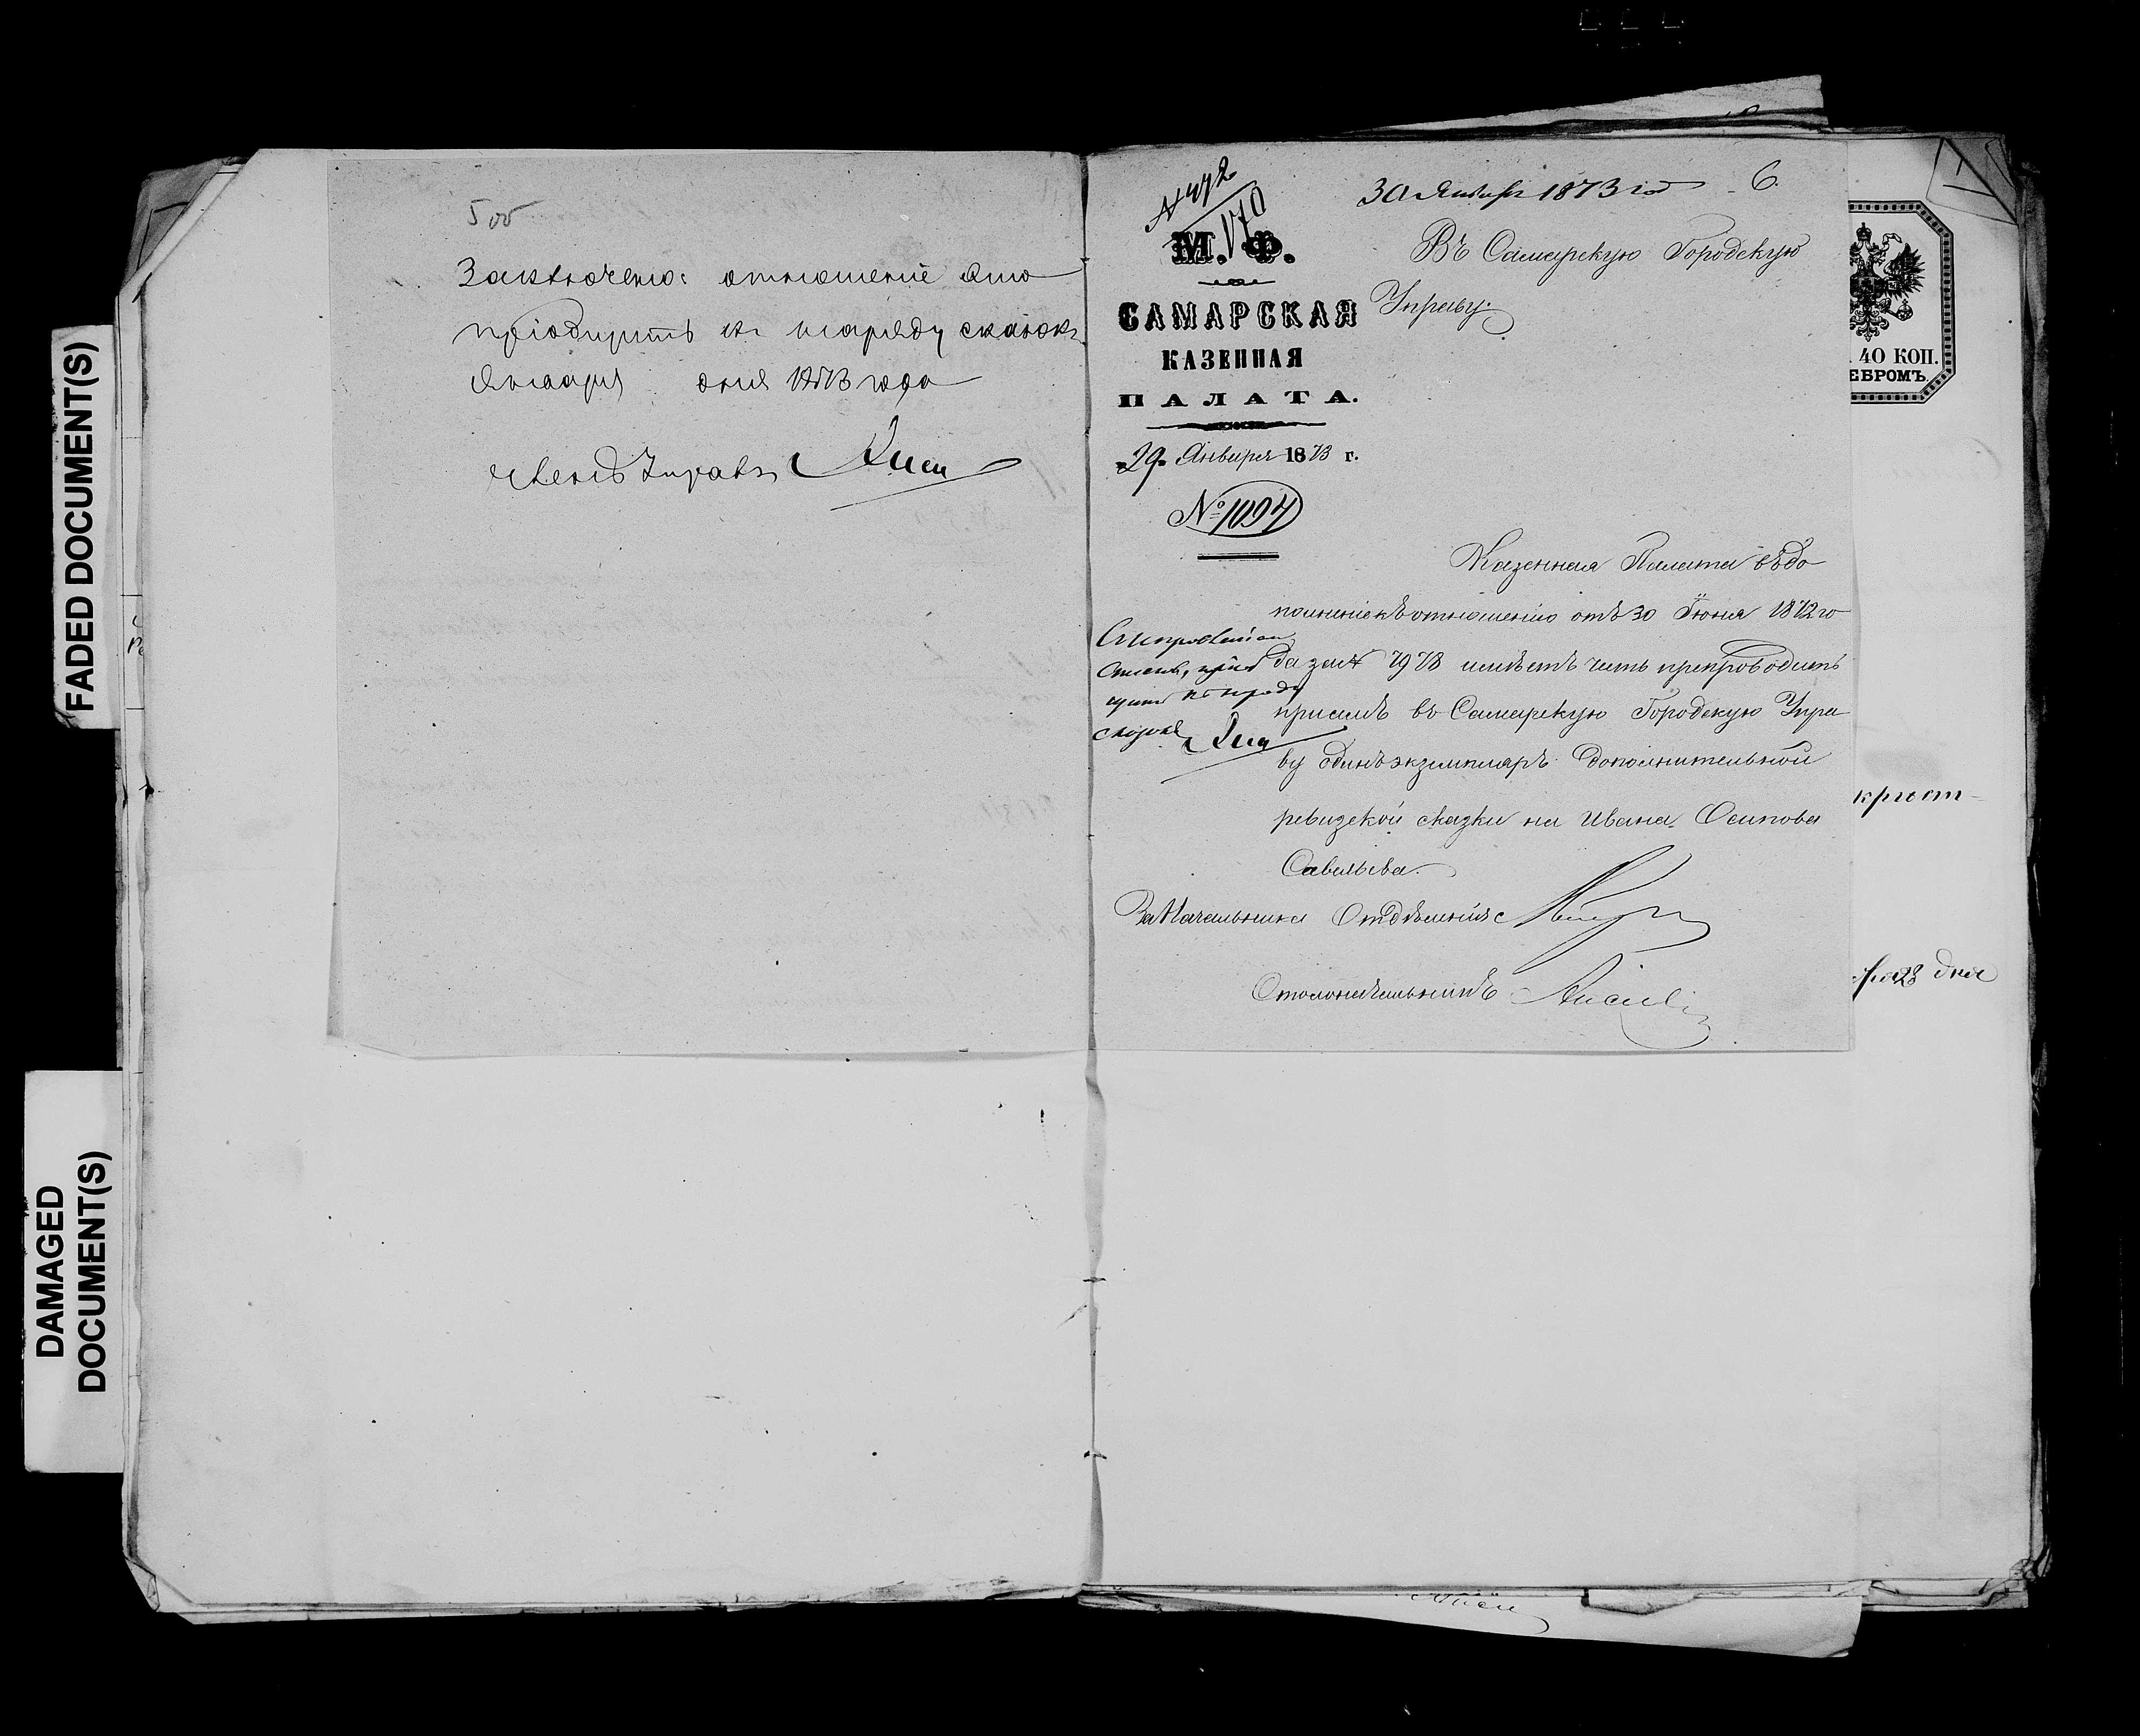 FADED DOCUMENT(S)
DAMAGED
DOCUMENT(S)
5 об
Заключено: отношение это
приобщить къ наряду сказокъ
Января дня 1873 года
Членъ Управы
№ 472
170
М. Ф.
САМАРСКАЯ
КАЗЕННАЯ
ПАЛАТА.
29 Января 1873 г.
№ 1094
30 Января 1873 год 6.
Въ Самарскую Городскую
Управу.
Казенная Палата въ до
полненіе къ отношенію отъ 30 Іюня 1872 го
да за № 7978 имѣетъ честь препроводить
при семъ въ Самарскую Городскую Упра
ву одинъ экземпляръ дополнительной
ревизской сказки на Ивана Осипова
Савельева.
За Начальника Отдѣленія
Столоначальникъ
40 КОП.
ЕБРОМЪ.
крест-
28 дня